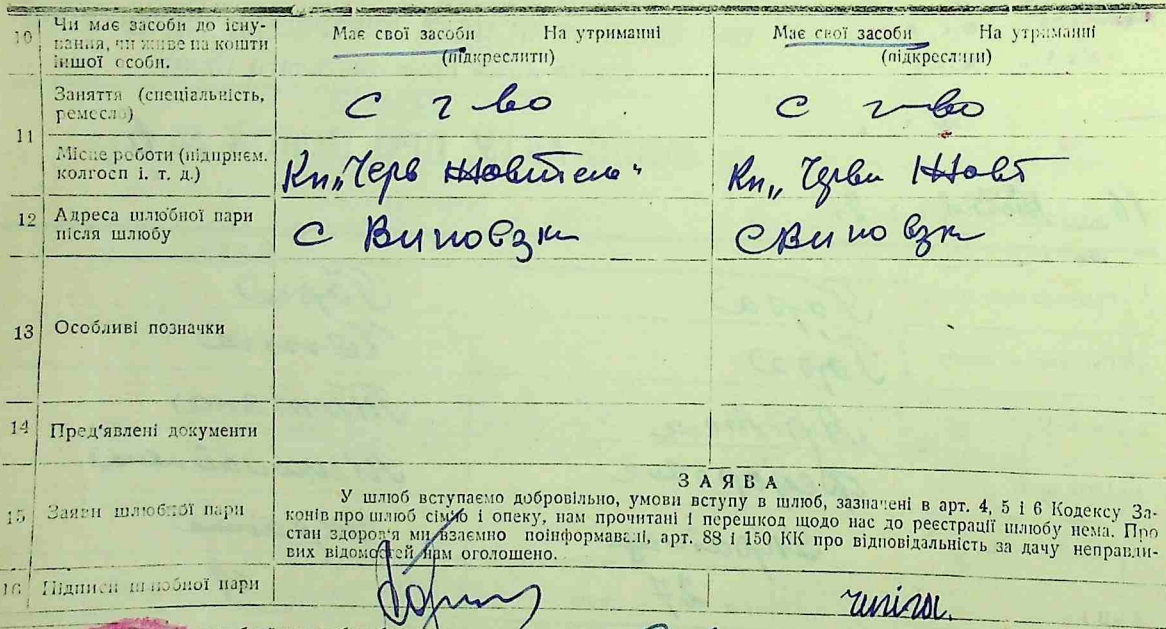 10 Чи має засоби до існу-
вання, чи живе на кошти
іншої особи.
Має свої засоби На утриманні
(підкреслити)
Має свої засоби На утриманні
(підкреслити)
11 Заняття (спеціальність,
ремесло)
с г-во
с г-во
Місце роботи (підприєм.
колгосп і. т. д.)
Кп „Черв Жовтень"
Кп „ Черв Жовт
12 Адреса шлюбної пари
після шлюбу
с Виповзки
с Виповзки
13 Особливі позначки
14 Пред'явлені документи
15 Заяви шлюбної пари
ЗАЯВА
У шлюб вступаємо добровільно, умови вступу в шлюб, зазначені в арт. 4, 5 і 6 Кодексу За-
конів про шлюб сім'ю і опеку, нам прочитані і перешкод щодо нас до реєстрації шлюбу нема. Про
стан здоров'я ми взаємно поінформавані, арт. 88 і 150 КК про відповідальність за дачу неправди-
вих відомостей нам оголошено.
16 Підписи шлюбної пари